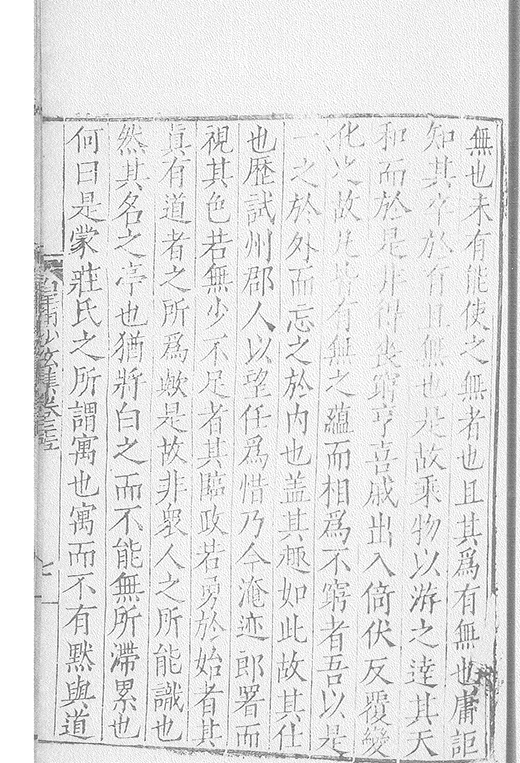 無也未有能使之無者也且其爲有無也庸詎
知其卒於有且無也是故乘物以游之達其天
和而於是非得喪窮亨喜戚出入倚伏反覆變
化之故凡皆有無之蘊而相爲不窮者吾以是
一之於外而忘之於内也盖其趣如此故其仕
也歴試州郡人以望任爲惜乃今淹迹郎署而
視其色若無少不足者其臨政若勇於始者其
眞有道者之所爲歟是故非衆人之所能識也
然其名之亭也猶將白之而不能無所滯累也
何曰是蒙莊氏之所謂寓也寓而不有黙與道
少玄集卷之
七